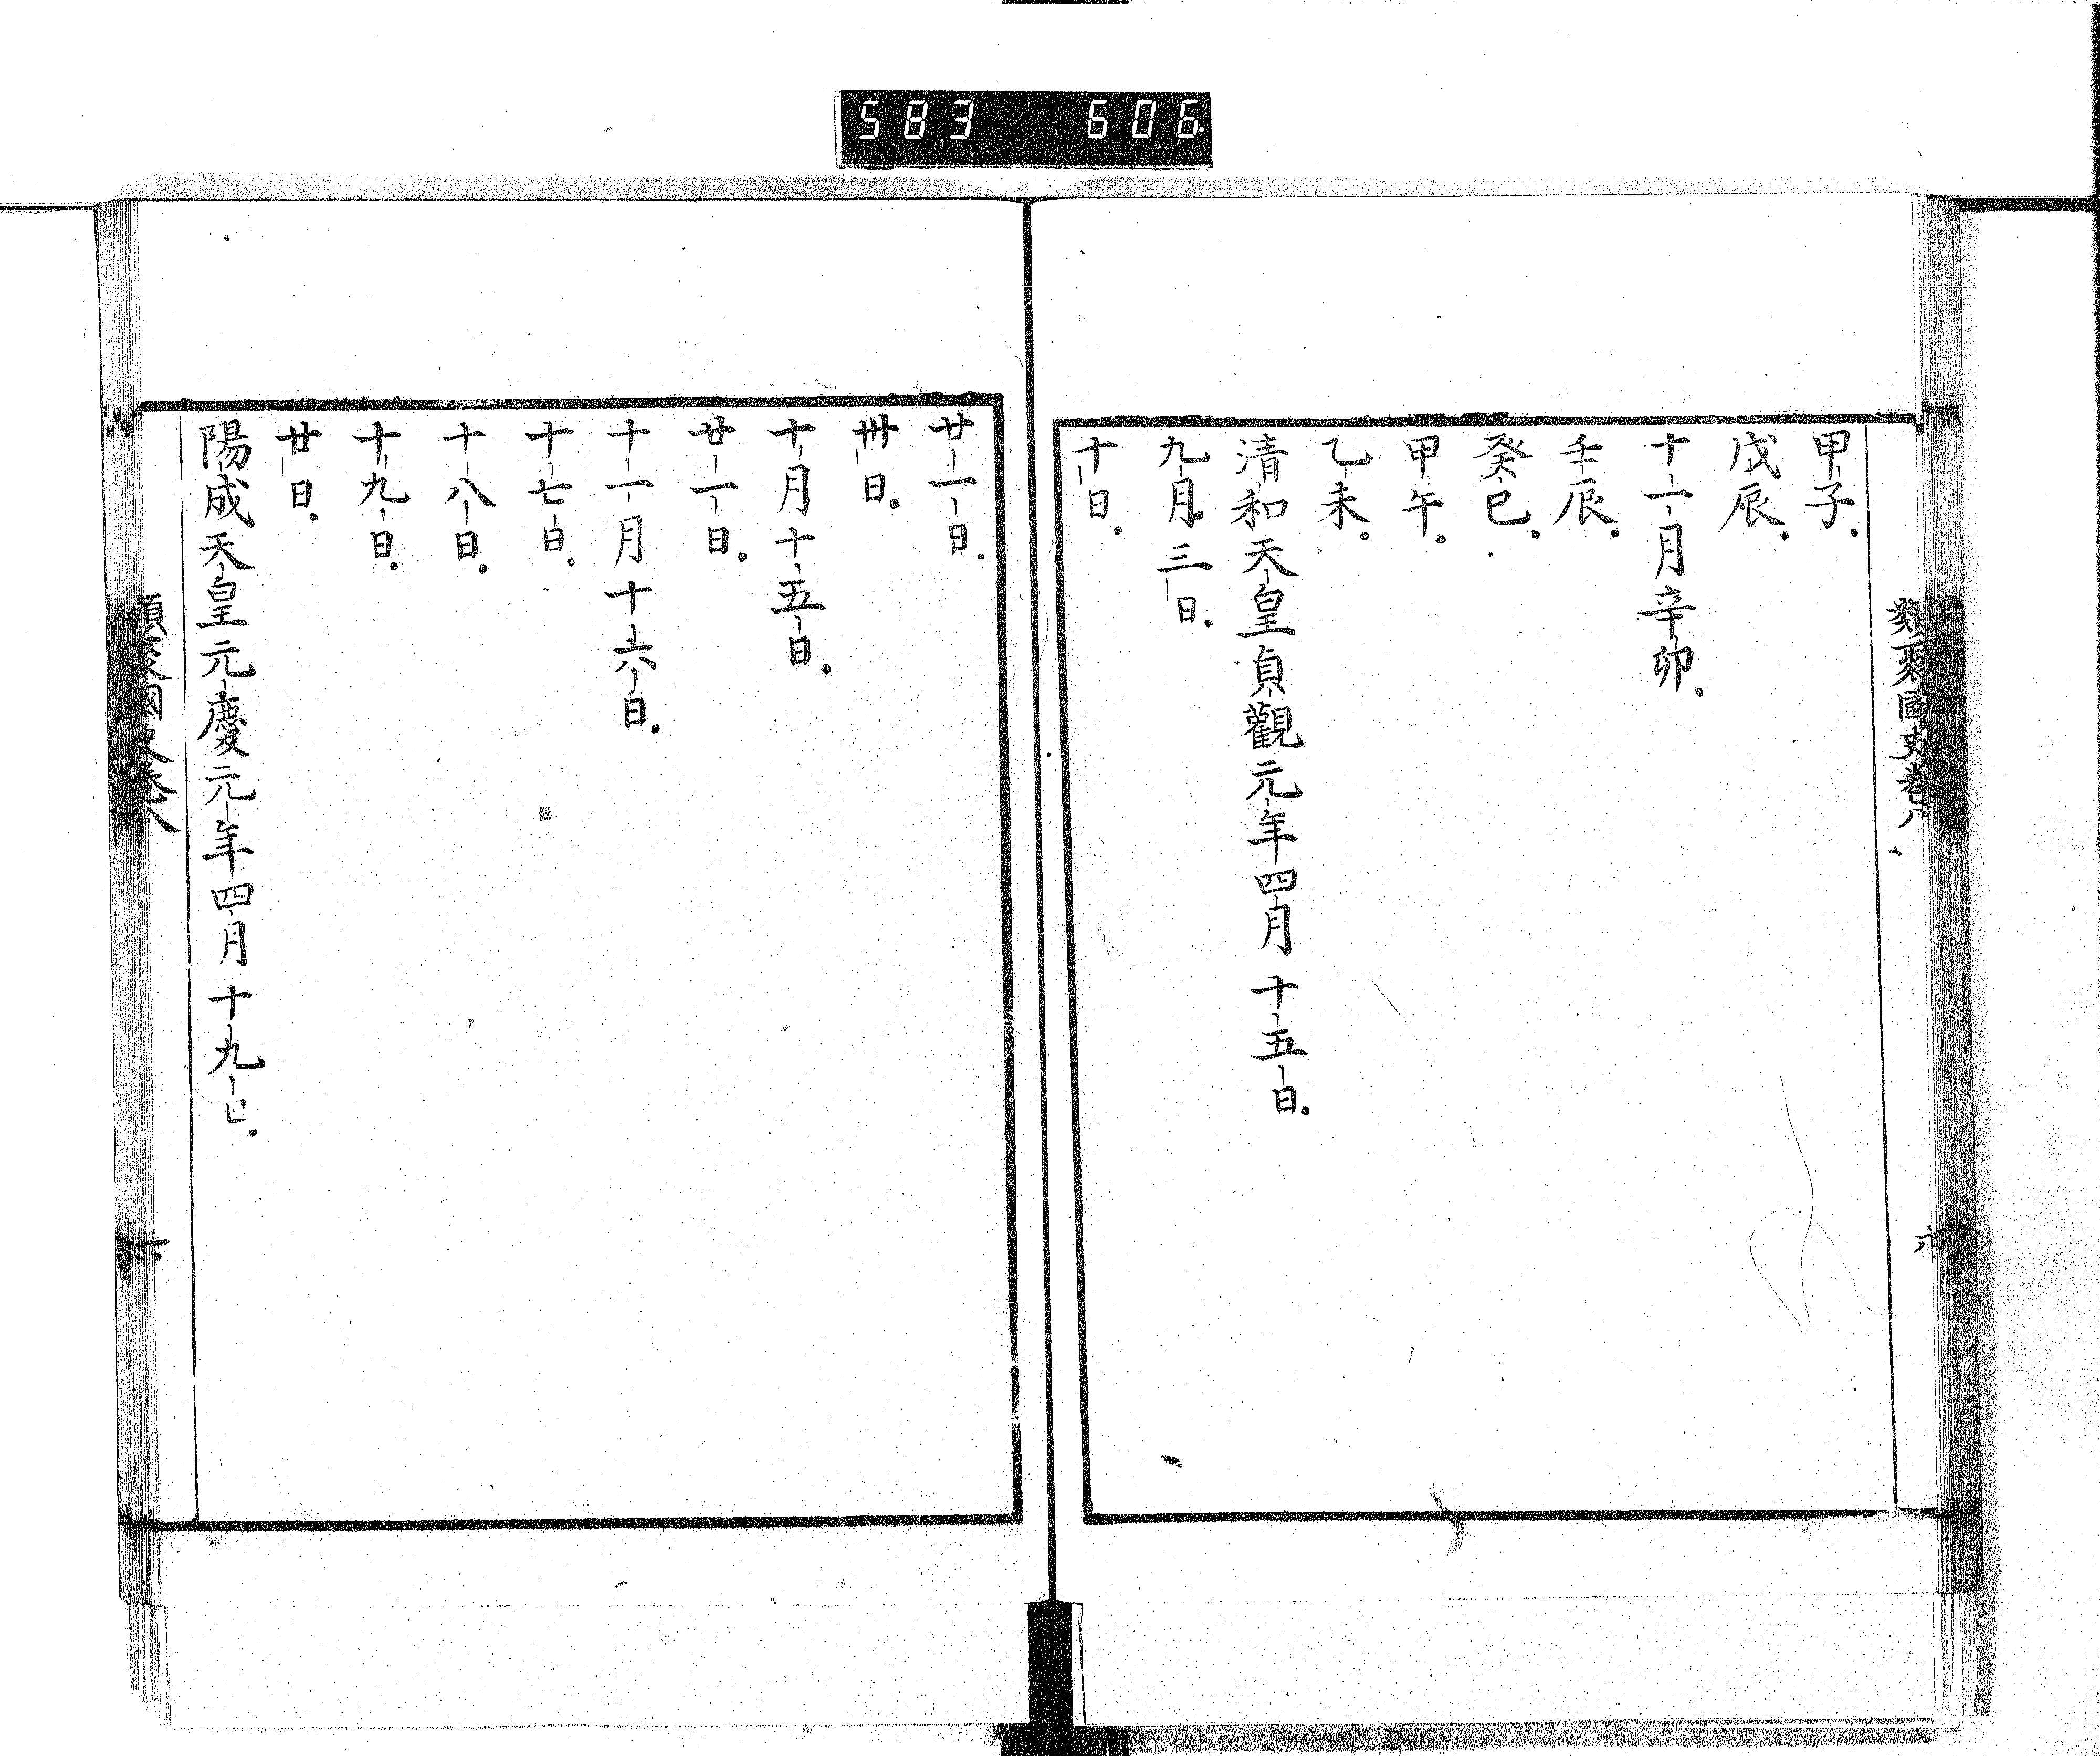 583 606
類聚國史卷八
六
甲子
戊辰
十一月辛卯
壬辰
癸巳
甲午
乙未
清和天皇貞觀元年四月十五日
九月三日
十日
廿一日
卅日
十月十五日
廿一日
十一月十六日
十七日
十八日
十九日
廿日
陽成天皇元慶元年四月十九日
類聚國史卷八